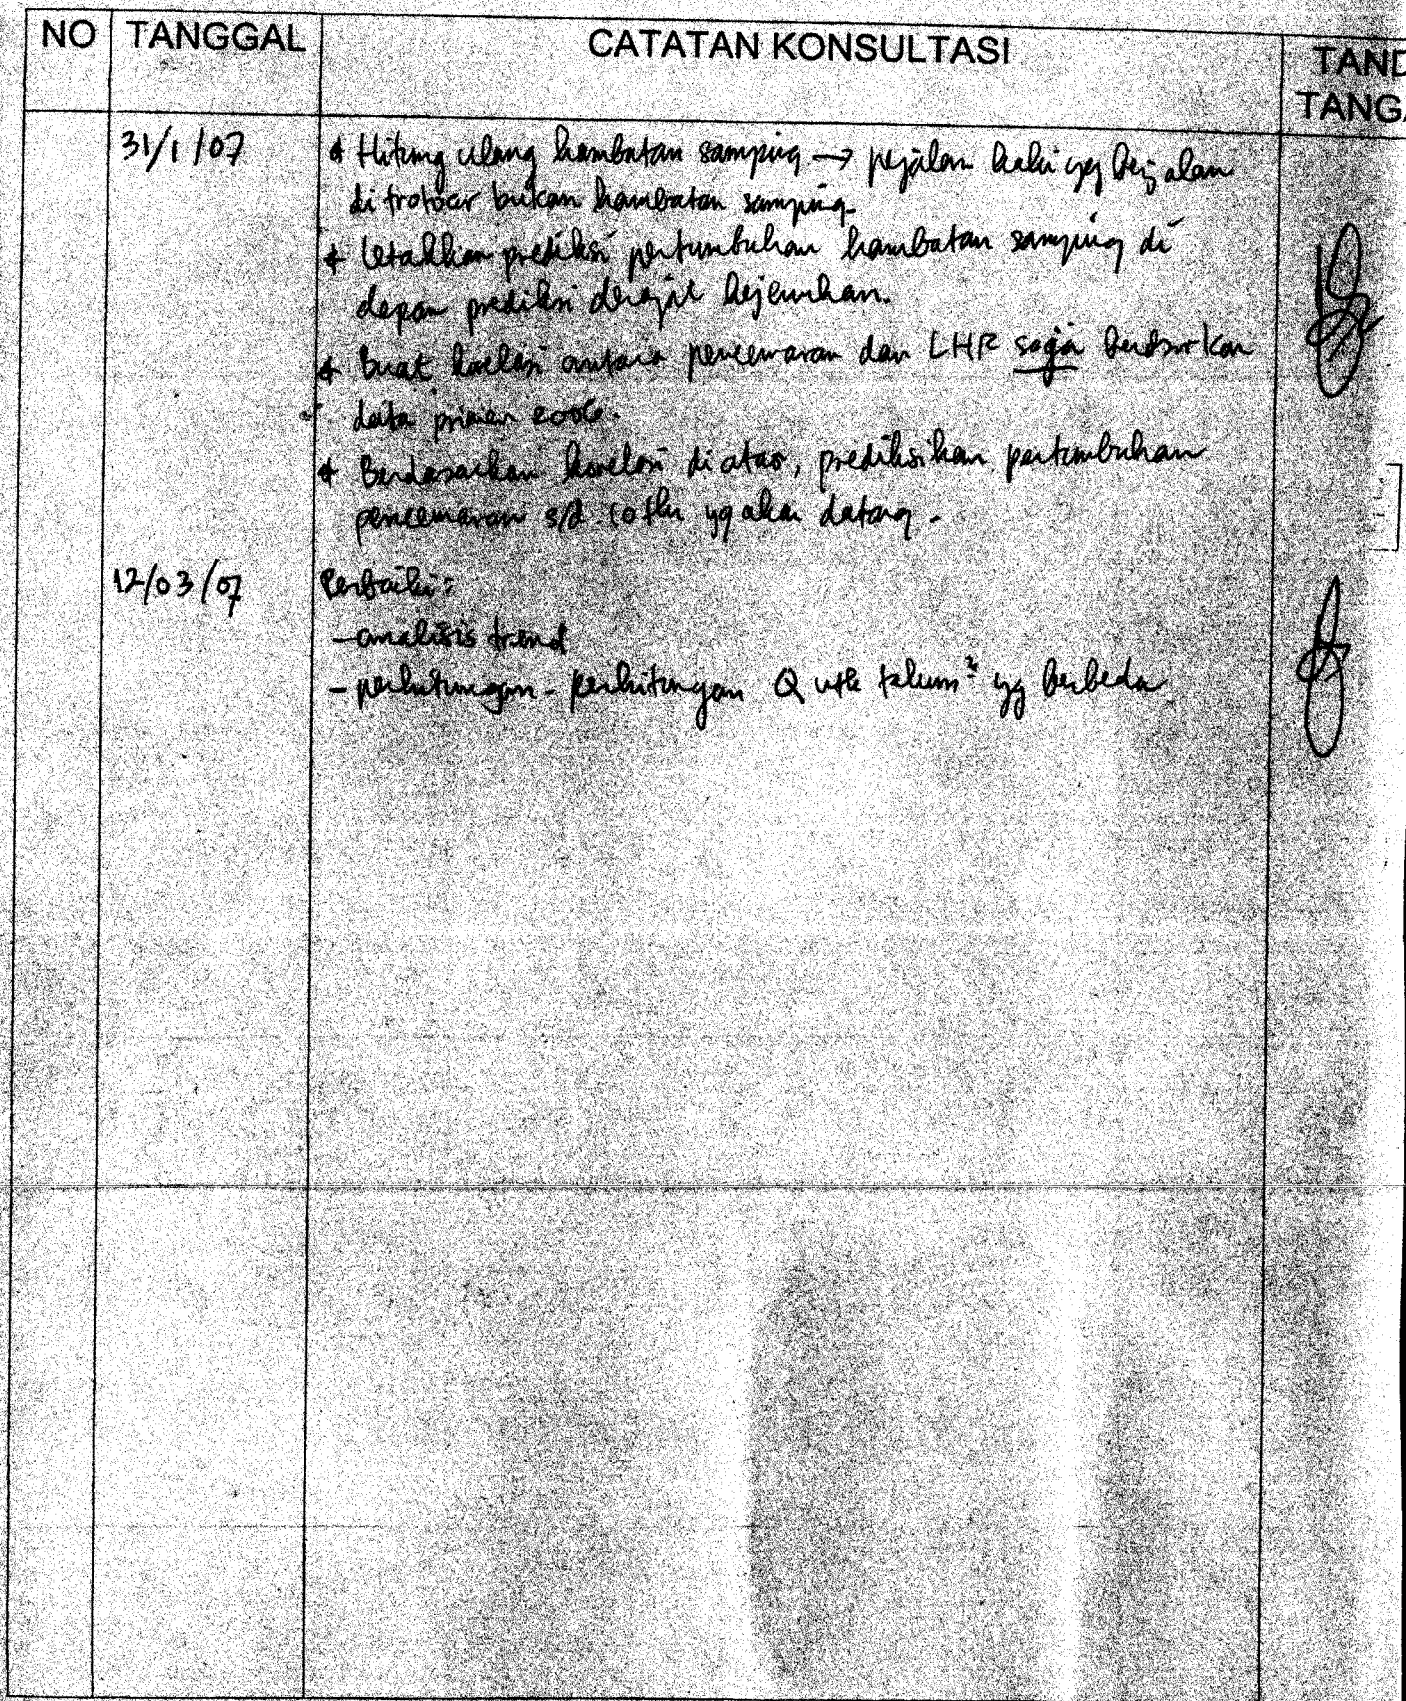 NO TANGGAL CATATAN KONSULTASI TAND
TANGA
31/1/07 * Hitung ulang hambatan samping → pejalan kaki yg berjalan
di trotoar bukan hambatan samping.
* Letakkan prediksi pertumbuhan hambatan samping di
depan prediksi derajat kejenuhan.
* Buat korelasi antara pencemaran dan LHR saja berdasarkan
data primer 2006.
* Berdasarkan korelasi di atas, prediksikan pertumbuhan
pencemaran s/d 10 thn yg akan datang.
12/03/07 Perbaiki:
- analisis trend
- perhitungan-perhitungan Q utk tahun² yg berbeda